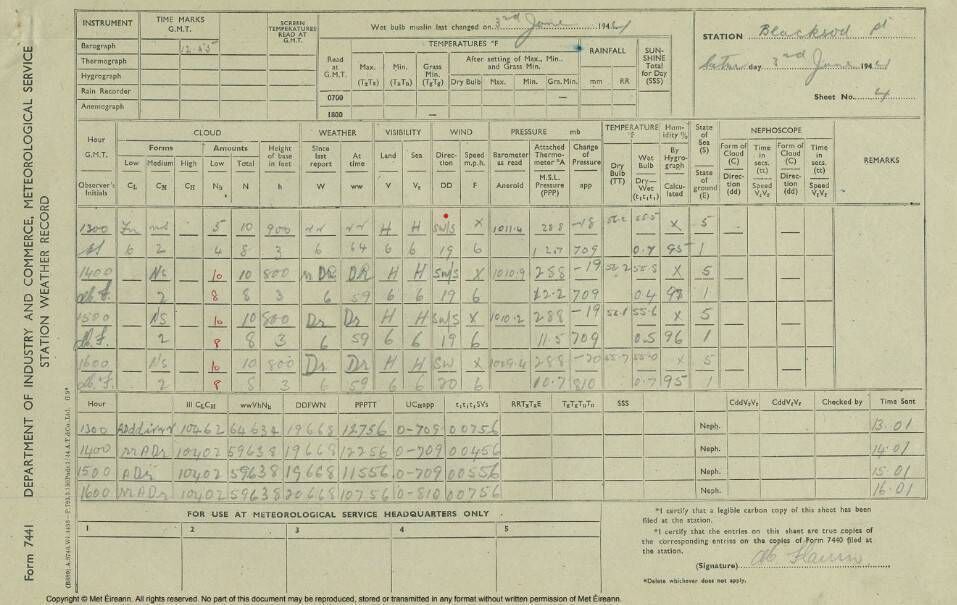 INSTRUMENT TIME MARKS G.M.T. SCREEN TEMPERATURES READ AT G.M.T.
Wet bulb muslin last changed on 3rd June 1944
STATION Blacksod Pt
Barograph 12.45
Thermograph
Hygrograph
Rain Recorder
Anemograph
Read at G.M.T. TEMPERATURES °F RAINFALL SUNSHINE Total for Day (SSS)
Max. Min. Grass Min. After setting of Max., Min., and Grass Min.
Dry Bulb Max. Min. Grs. Min. mm RR
0700 —
1800 —
day 3rd June 1944
Sheet No. 4
Hour G.M.T. CLOUD WEATHER VISIBILITY WIND PRESSURE mb TEMPERATURE °F Humidity % State of Sea (S) NEPHOSCOPE REMARKS
Forms Amounts Height of base in feet Since last report At time Land Sea Direction Speed m.p.h. Barometer as read Attached Thermometer °A Change of Pressure Dry Bulb (TT) Wet Bulb By Hygrograph Form of Cloud (C) Time in secs. (tt) Form of Cloud (C) Time in secs. (tt)
Low Medium High Low Total
Observer's Initials N h W ww V DD F Aneroid M.S.L. Pressure (PPP) app Dry—Wet Calculated State of ground (E) Direction (dd) Speed Direction (dd) Speed
1300 5 10 900 H H SW/S X 1011.4 288 X 5
6 2 4 8 3 6 64 6 6 19 6 12.7 709 0.7 95 1
1400 — Ns — 10 10 800 H H SW/S X 1010.9 288 -19 X 5
2 8 8 3 6 59 6 6 19 6 12.2 709 0.4 1
1500 — NS — 10 10 800 Dr Dr H H SW/S X 1010.2 288 -19 55.6 X 5
2 8 8 3 6 59 6 6 19 6 11.5 709 0.5 96 1
1600 — Ns — 10 10 800 Dr Dr H H SW X 1009.4 288 -20 55.7 55.0 X 5
2 8 8 3 6 59 6 6 20 6 10.7 810 0.7 95 1
Hour DDFWN PPPTT SSS Checked by Time Sent
1300 10462 64634 19668 12756 0-709 00756 Neph. 13.01
1400 10402 59638 19668 12256 0-709 00456 Neph. 14.01
1500 10402 59638 19668 11556 0-709 00556 Neph. 15.01
1600 10402 59638 20668 10756 0-810 00756 Neph. 16.01
FOR USE AT METEOROLOGICAL SERVICE HEADQUARTERS ONLY
1 2 3 4 5
*I certify that a legible carbon copy of this sheet has been
filed at the station.
*I certify that the entries on this sheet are true copies of
the corresponding entries on the copies of Form 7440 filed at
the station.
(Signature)
*Delete whichever does not apply.
Form 7441 DEPARTMENT OF INDUSTRY AND COMMERCE, METEOROLOGICAL SERVICE
STATION WEATHER RECORD
Copyright © Met Éireann. All rights reserved. No part of this document may be reproduced, stored or transmitted in any format without written permission of Met Éireann.